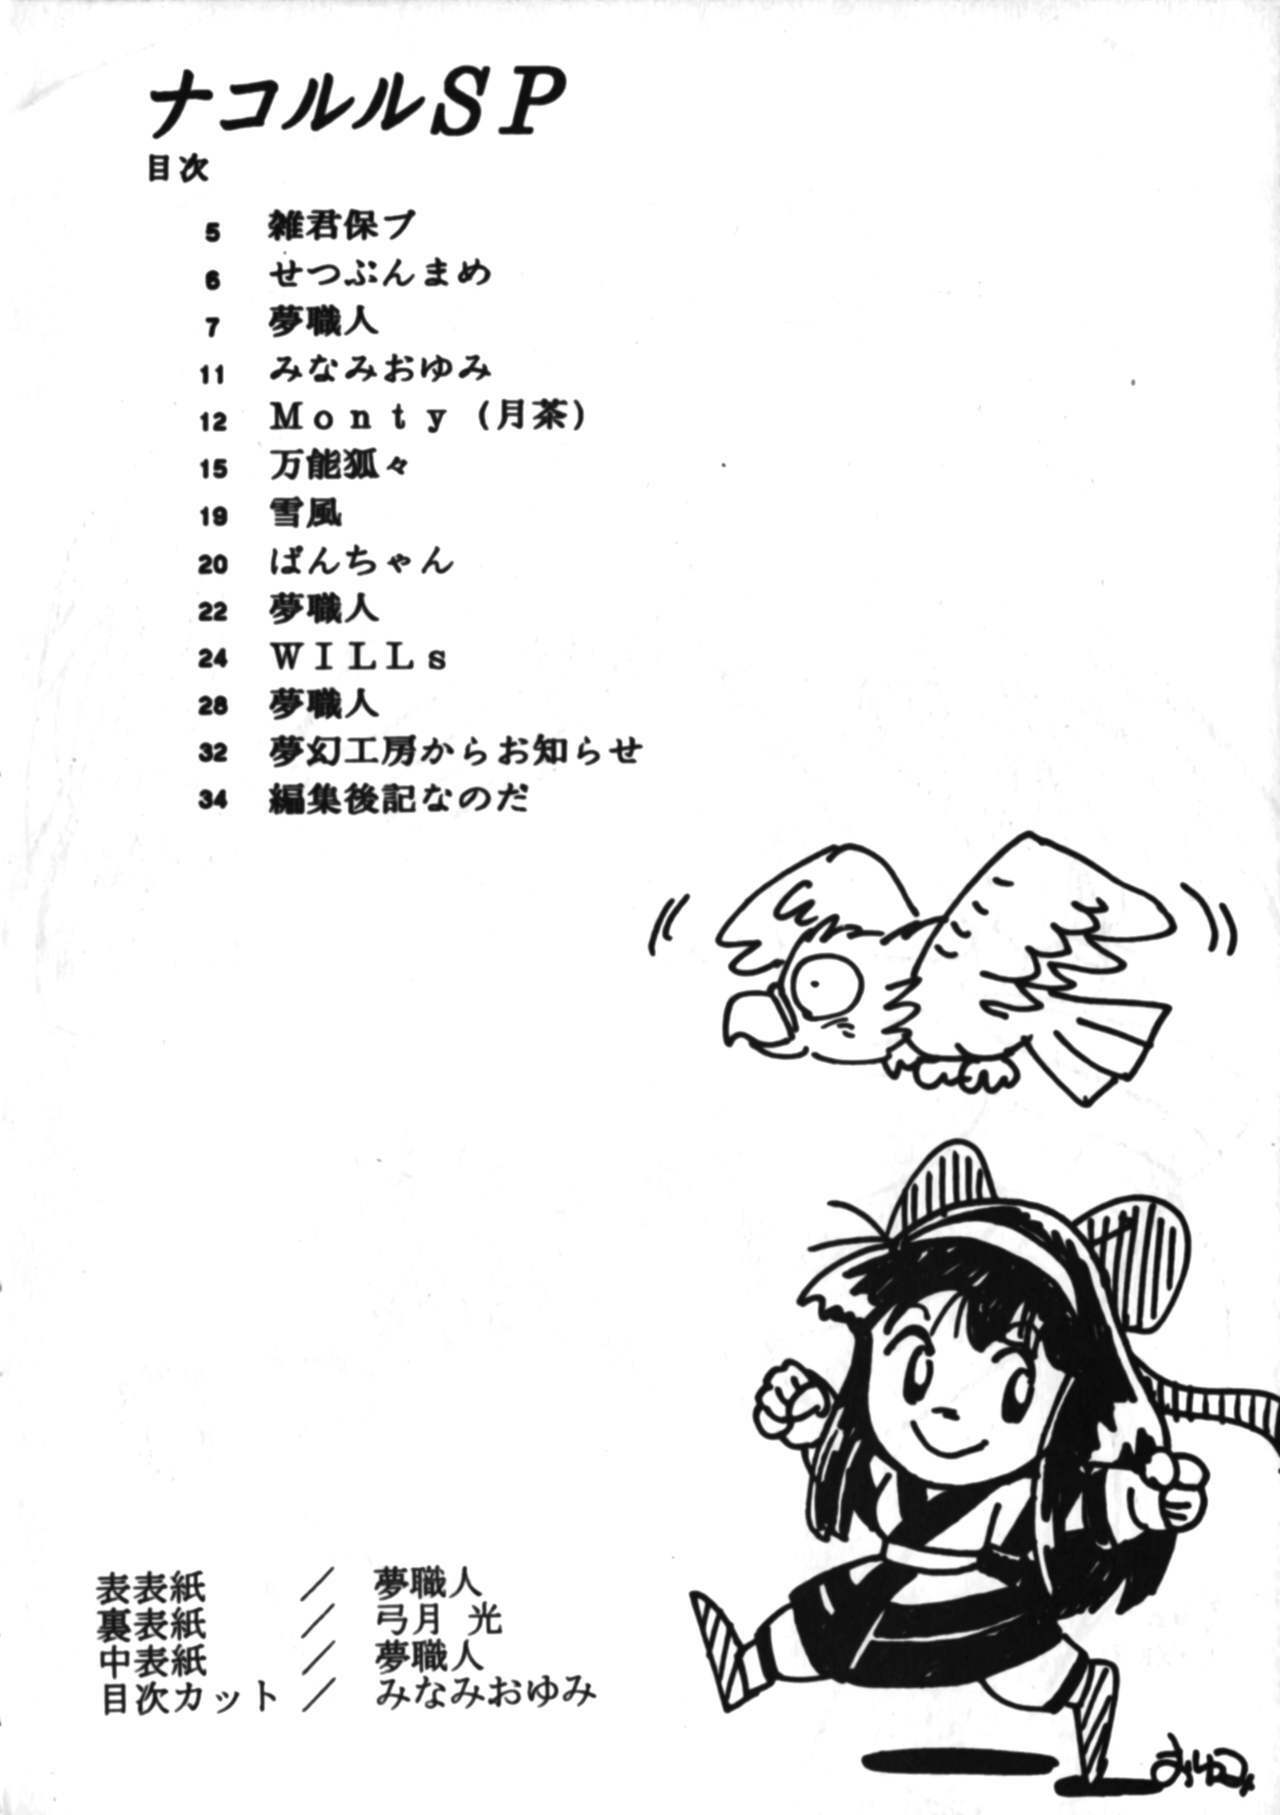 ナコルルSP
目次
5 雑君保プ
6 せつぶんまめ
7 夢職人
11 みなみおゆみ
12 Monty（月茶）
15 万能狐々
19 雪風
20 ばんちゃん
22 夢職人
24 WILLs
28 夢職人
32 夢幻工房からお知らせ
34 編集後記なのだ
表表紙 ／ 夢職人
裏表紙 ／ 弓月 光
中表紙 ／ 夢職人
目次カット ／ みなみおゆみ